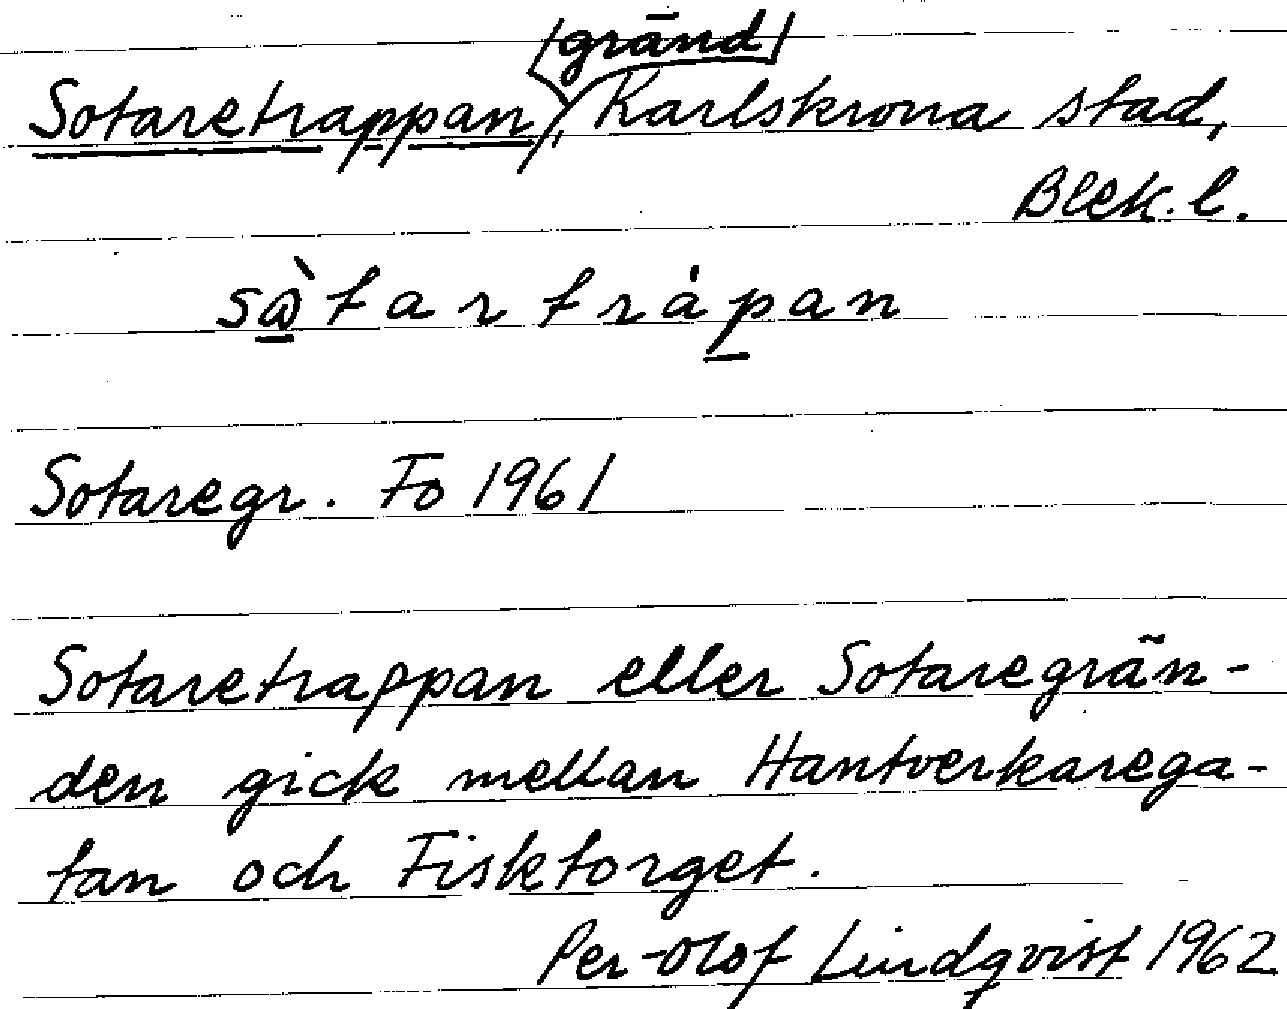 (gränd)
Sotaretrappan, Karlskrona stad,
Blek. l.
Sotaregr. Fo 1961
Sotaretrappan eller Sotaregrän-
den gick mellan Hantverkarega-
tan och Fisktorget.
Per-Olof Lindqvist 1962